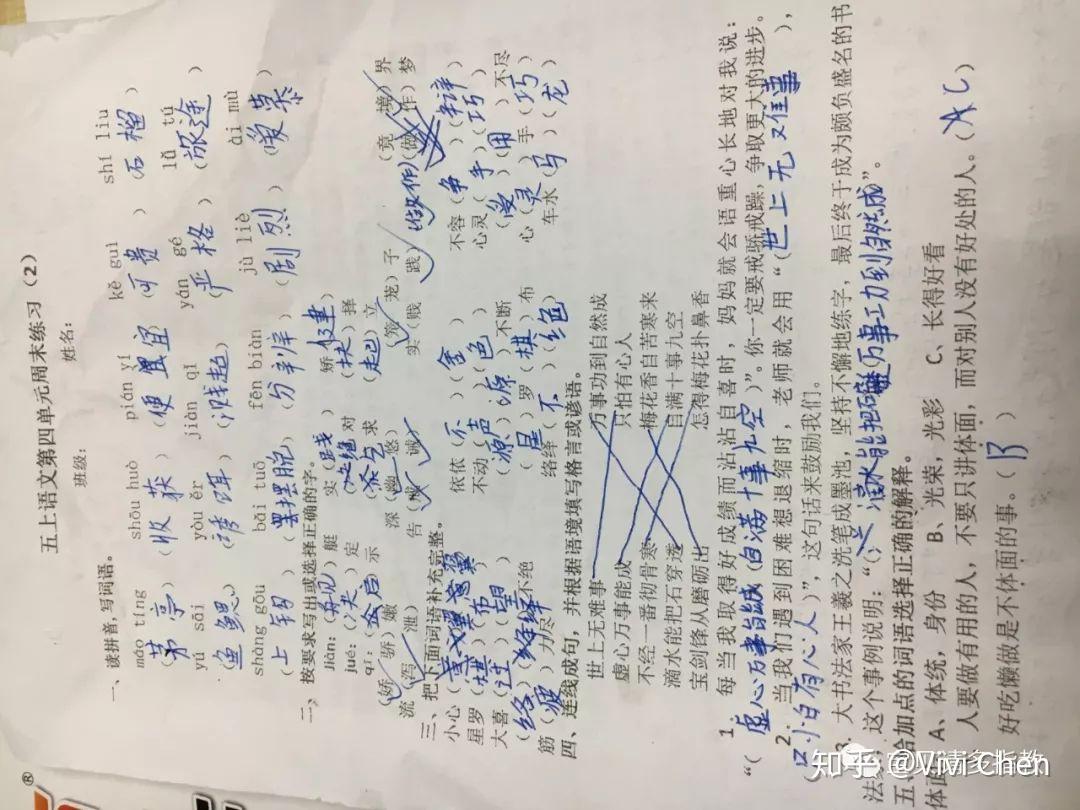 五上语文第四单元周末练习（2）
班级： 姓名：
一、读拼音，写词语。
máo tíng shōu huò pián yí kě guì shí liu
（茅亭）（收获）（便宜）（可贵）（石榴）
yú sāi yòu ěr jiàn qǐ yán gé lǚ tú
（鱼鳃）（诱饵）（溅起）（严格）（旅途）
shàng gōu bǎi tuō fēn biàn jù liè ài mù
（上钩）（摆脱）（分辨）（剧烈）（爱慕）
二、按要求写出或选择正确的字。
jiàn：（舰）艇 实（践） 矫（健）
jué：（决）定 （绝）对 （抉）择
qǐ：（启）示 （企）求 （起）立
（娇 骄）嫩 深（幽 悠） （笼 龙）子 （竟 境）界
流（泻 泄） 告（ 诫） 实（贱 践） （做 作）（做 作）梦
三、把下面词语补充完整。
小心（翼翼） 依依（不舍） 不容（争辩）
星罗（棋布） 不动（声色） 心灵（手巧）
大喜（过望） （源源）不断 （受用）不尽
筋（疲）力尽 （星）罗（棋）布 心（灵）手（巧）
（络绎）不绝 络绎（不绝） 车水（马龙）
四、连线成句，并根据语境填写格言或谚语。
世上无难事 万事功到自然成
虚心万事能成 只怕有心人
不经一番彻骨寒 梅花香自苦寒来
滴水能把石穿透 自满十事九空
宝剑锋从磨砺出 怎得梅花扑鼻香
1. 每当我取得好成绩而沾沾自喜时，妈妈就会语重心长地对我说：
“（虚心万事能诚 自满十事九空）”。你一定要戒骄戒躁，争取更大的进步。
2. 当我们遇到困难想退缩时，老师就会用“（世上无难事），
（只怕有心人）”，这句话来鼓励我们。
3. 大书法家王羲之洗笔成墨池，坚持不懈地练字，最后终于成为颇负盛名的书
法家，这个事例说明：“（滴水能把 万事功到自然成”。
五、给加点的词语选择正确的解释。
体面：A、体统，身份 B、光荣，光彩 C、长得好看
人要做有用的人，不要只讲体面，而对别人没有好处的人。（AC）
好吃懒做是不体面的事。（B）
知乎 @Vivi Chen